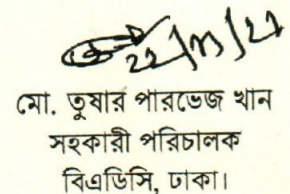 ২২/০৯/২১
মো. তুষার পারভেজ খান
সহকারী পরিচালক
বিএডিসি, ঢাকা।